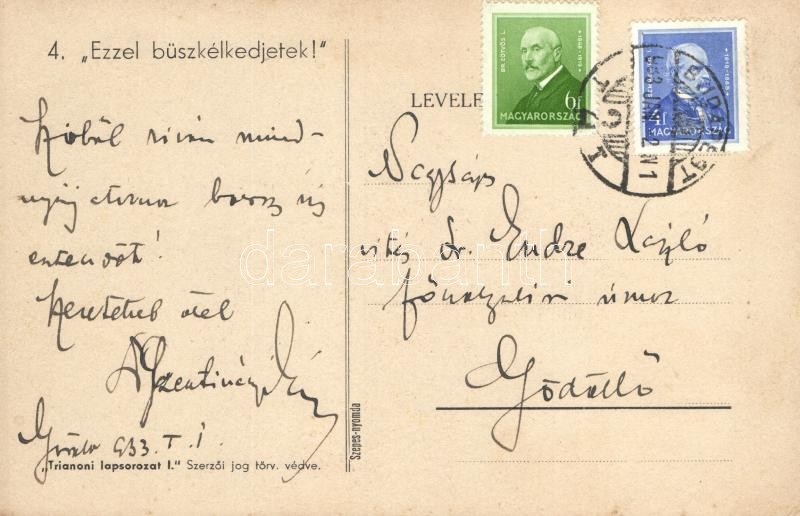 4. „Ezzel büszkélkedjetek!"
LEVELE
BR. EÖTVÖS L.
1848-1919
6f
MAGYARORSZÁG
4f
MAGYARORSZÁG
BUDAPEST
Nagyságos
vitéz dr. Endre László
főszolgabíró úrnak
Gödöllő
Szívből kíván mind-
új
esztendőt!
Szeretettel ölel
933. I. 1
„Trianoni lapsorozat I." Szerzői jog törv. védve.
Szepes-nyomda
darabanth